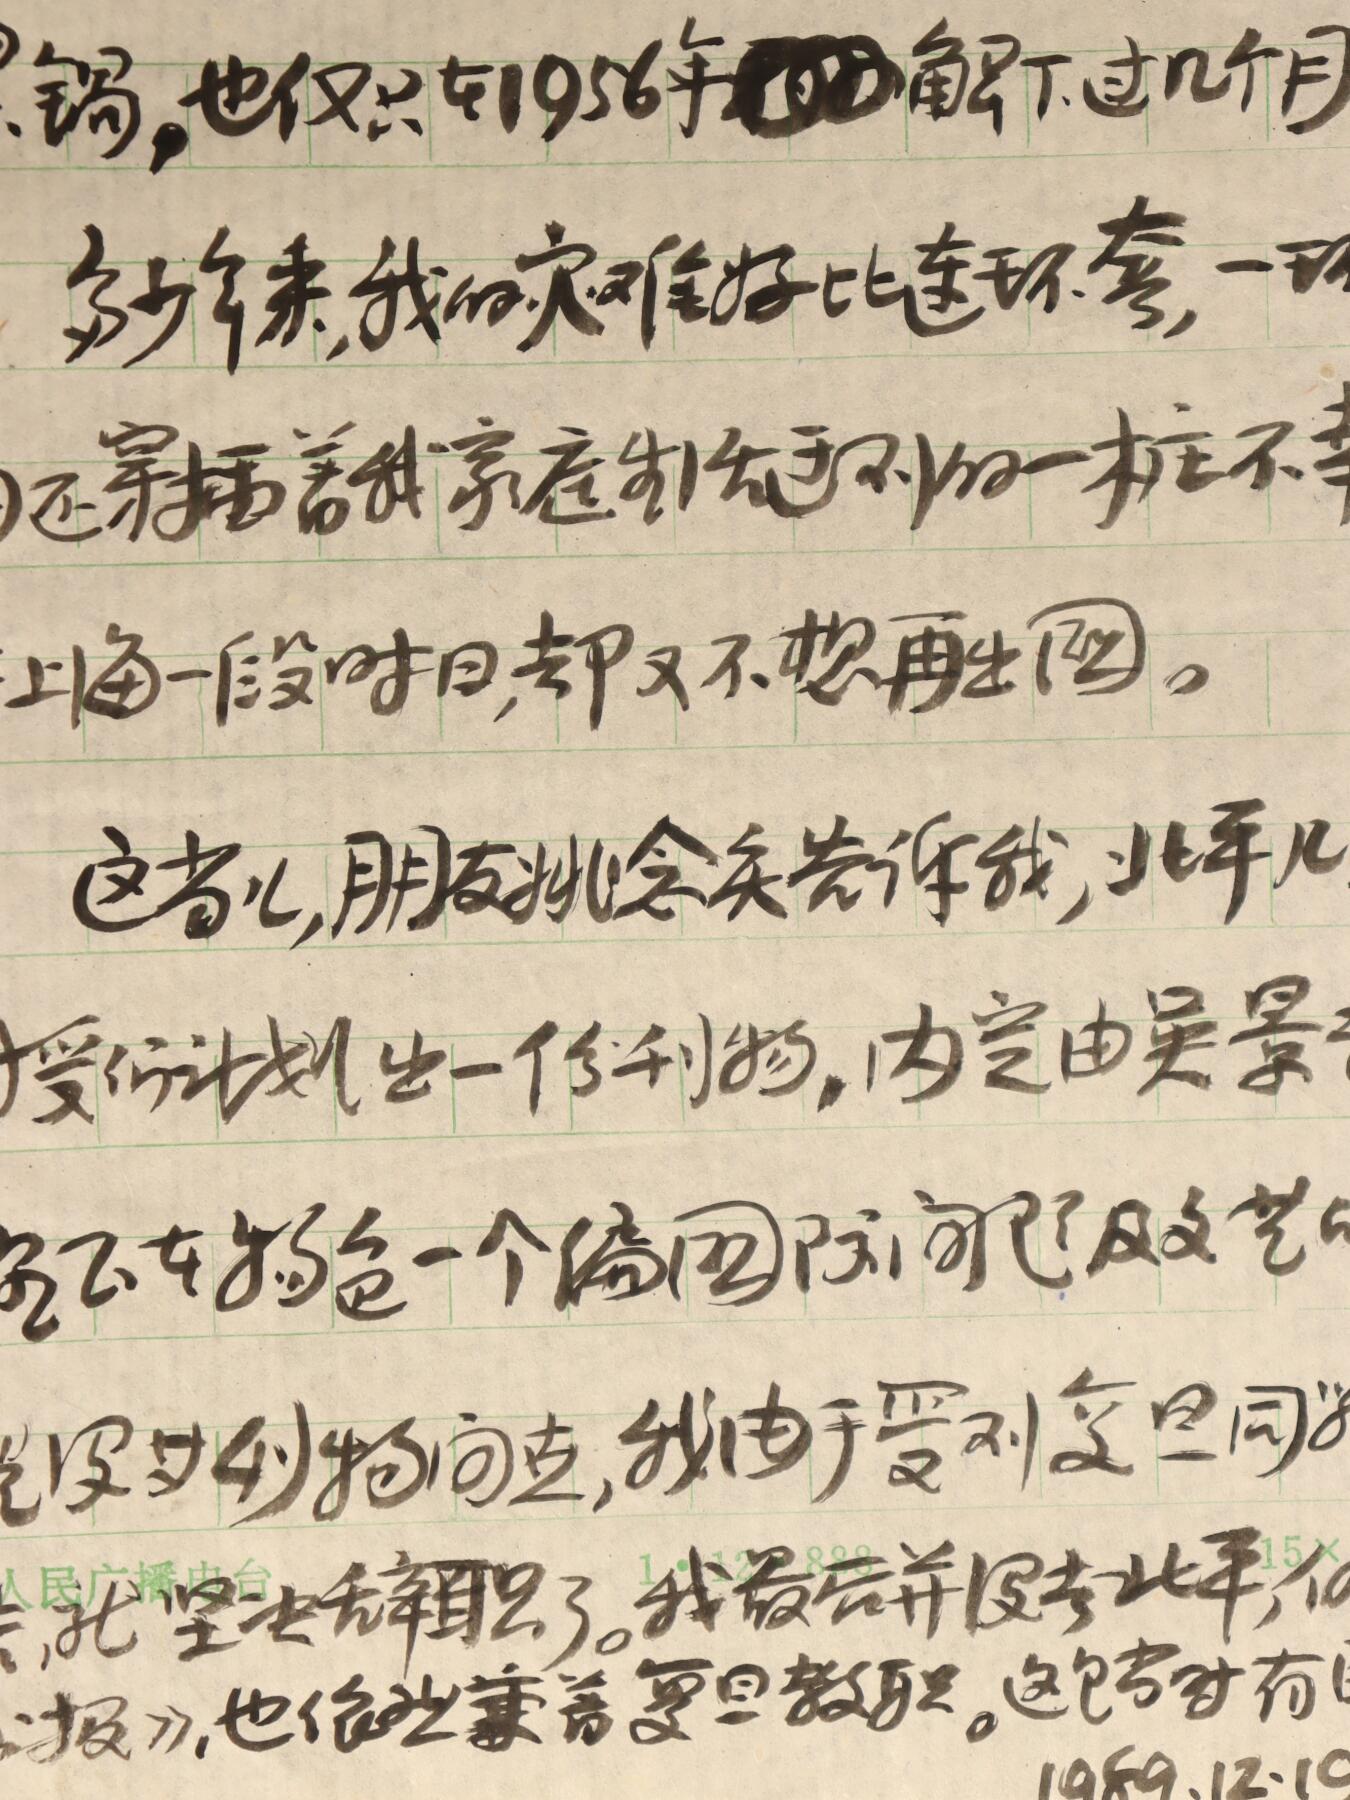 锅，也仅只在1956年解下过几个月
多少年来，我的灾难好比连环套，一环
还穿插着我家庭生活遇到的一桩不幸
上海一段时日，却又不想再出国。
这当儿，朋友姚念庆告诉我，北平几
授们计划出一份刊物，内定由吴景
正在物色一个编国际问题及文艺的
没等刊物问世，我由于受到复旦同学
人民广播电台 1·12 888 15×
就坚决辞职了。我最后并没去北平，仍
报》，也依然兼着复旦教职。这包当时有
1989.12.10